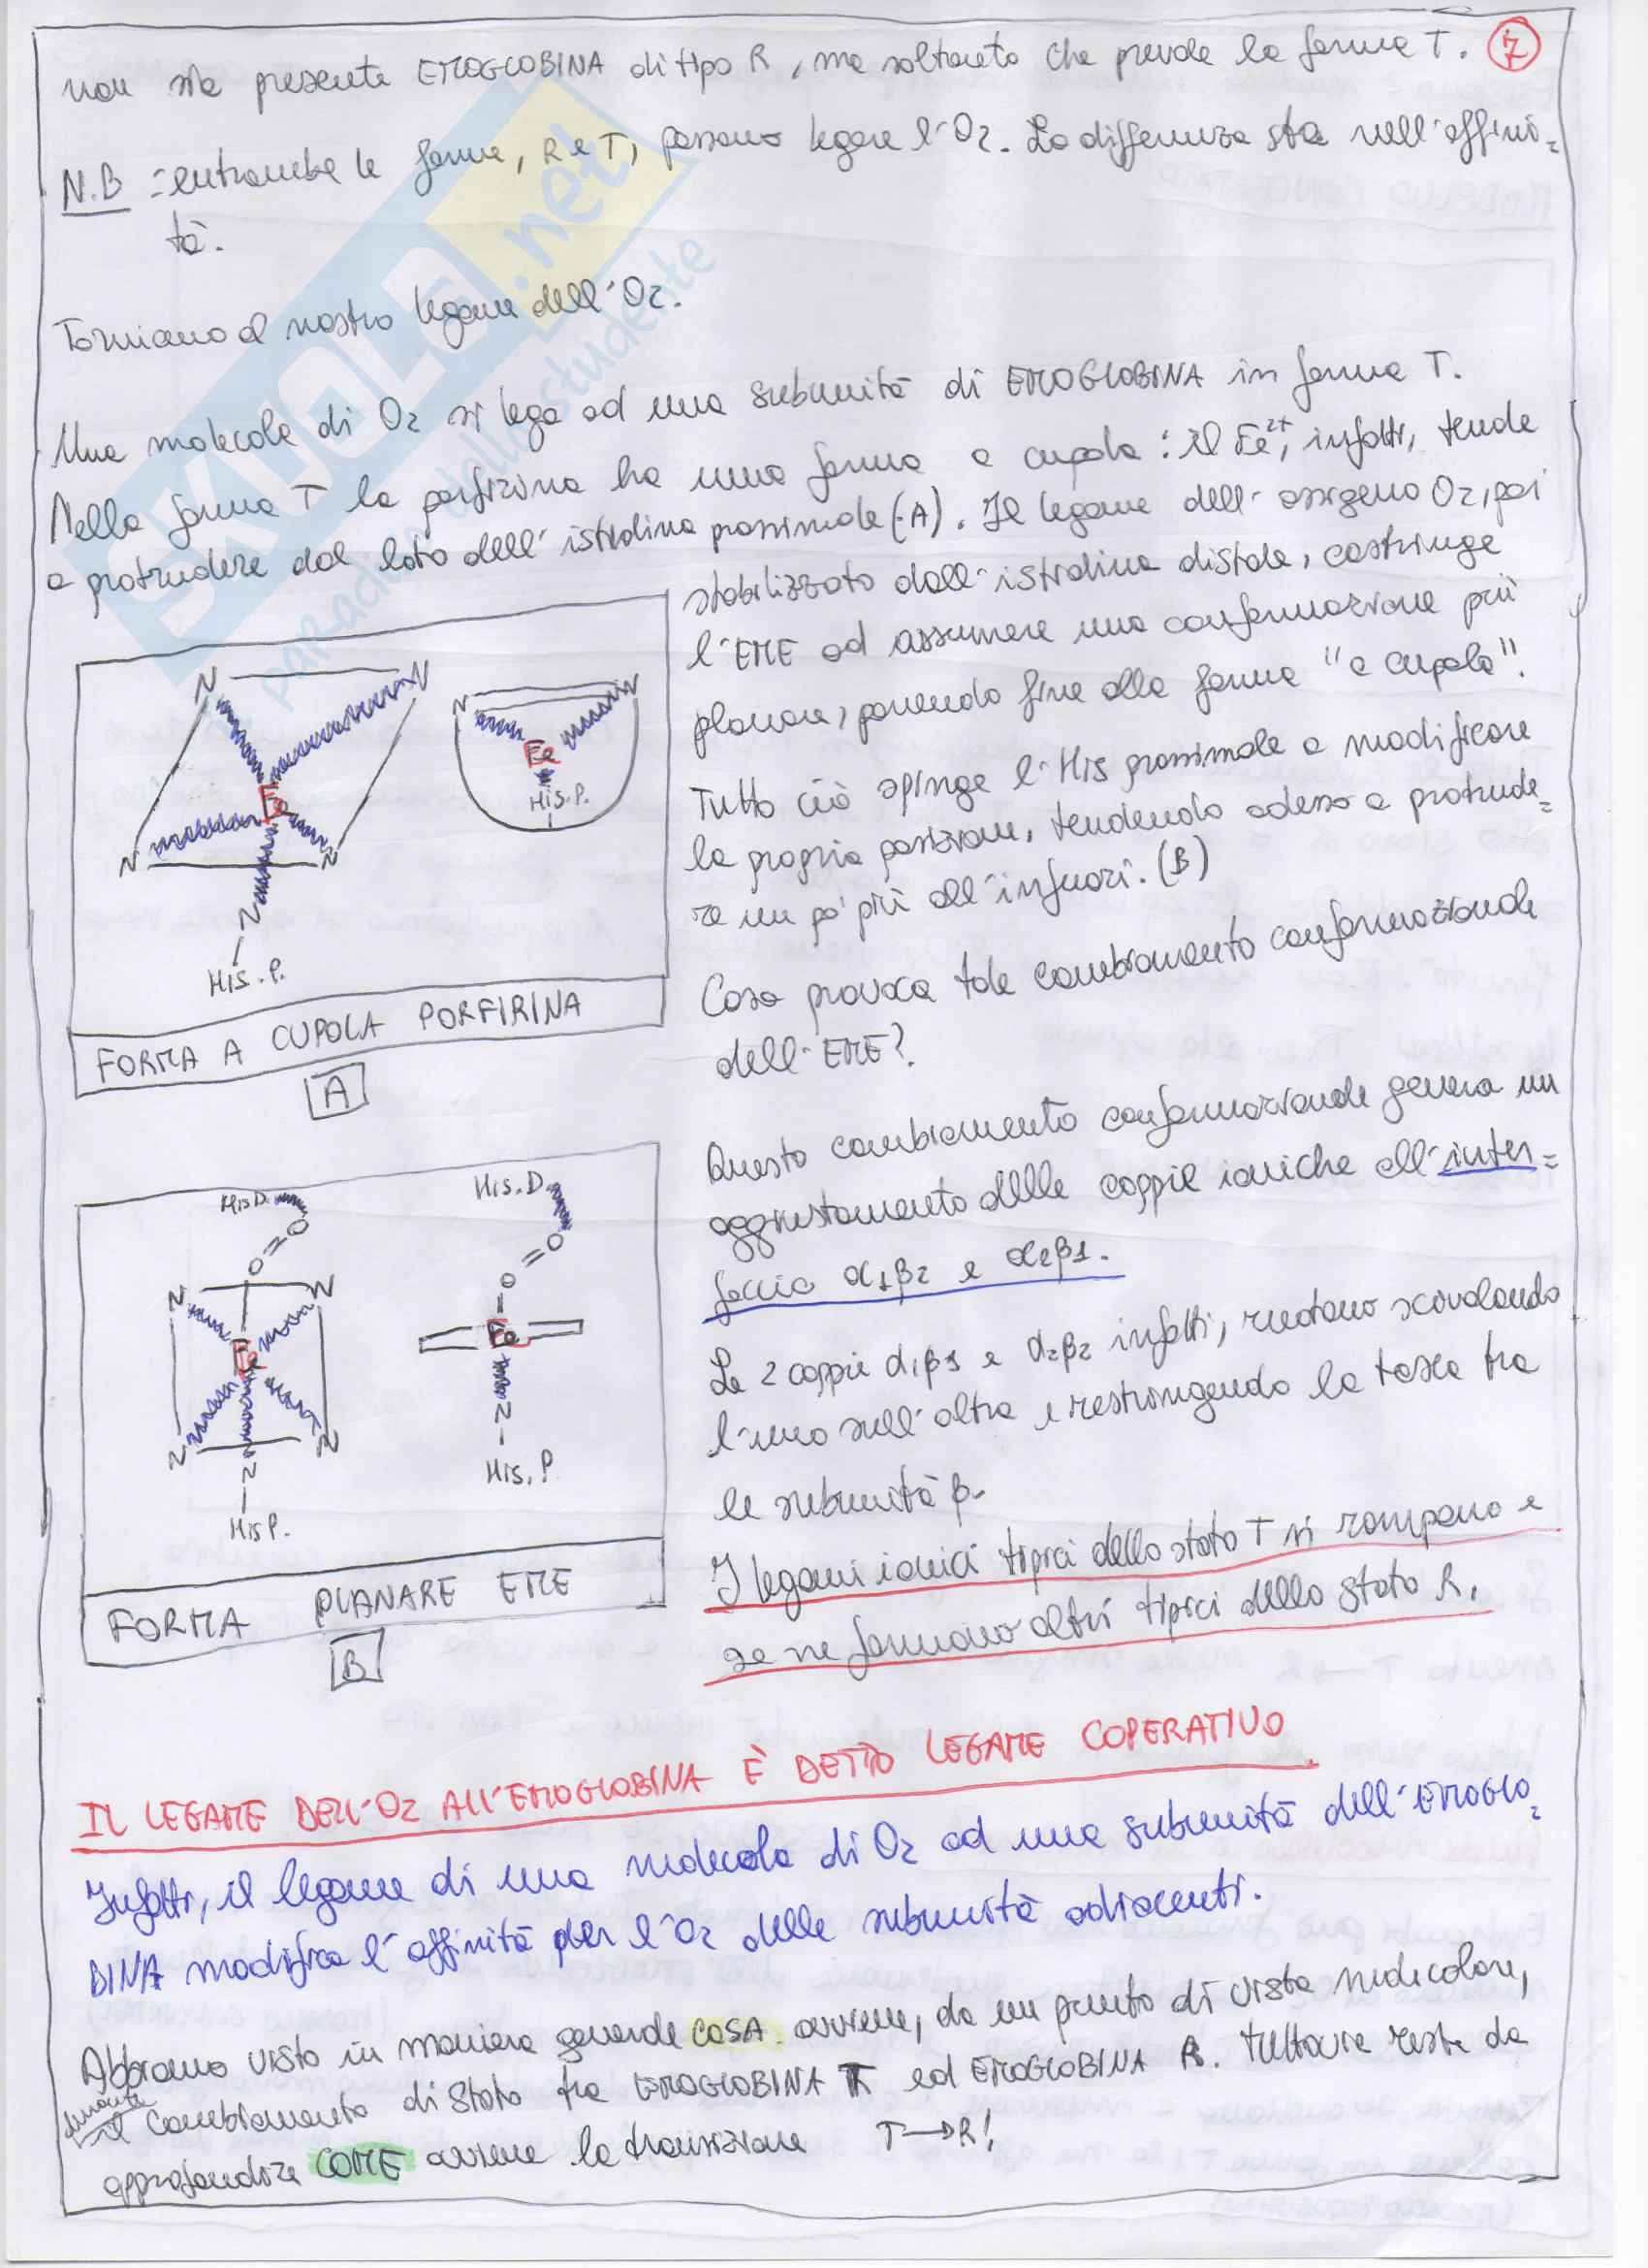 non sia presente EMOGLOBINA di tipo R, ma soltanto che prevale la forma T. 7
N.B = entrambe le forme, R e T, possono legare l'O2. La differenza sta nell'affini=
tà.
Torniamo al nostro legame dell'O2.
Una molecola di O2 si lega ad una subunità di EMOGLOBINA in forma T.
Nella forma T la porfirina ha una forma a cupola: il Fe2+, infatti, tende
a protrudere dal lato dell'istidina prossimale (A). Il legame dell'ossigeno O2, poi
stabilizzato dall'istidina distale, costringe
l'EME ad assumere una conformazione più
planare, ponendo fine alla forma "a cupola".
Tutto ciò spinge l'His prossimale a modificare
la propria posizione, tendendo adesso a protrude=
re un po' più all'infuori. (B)
Cosa provoca tale cambiamento conformazionale
dell'EME?
Questo cambiamento conformazionale genera un
aggiustamento delle coppie ioniche all'inter=
faccia α1β2 e α2β1.
Le 2 coppie α1β1 e α2β2 infatti, ruotano scivolando
l'uno sull'altra e restringendo la tasca tra
le subunità β.
I legami ionici tipici dello stato T si rompono e
se ne formano altri tipici dello stato R.
N N N N
Fe
N N N
Fe
His.P.
His.P.
FORMA A CUPOLA PORFIRINA
A
His D. His.D.
O=O O=O
N N
Fe Fe
N N
N N
His P. His.P
FORMA PLANARE EME
B
IL LEGAME DELL'O2 ALL'EMOGLOBINA È DETTO LEGAME COPERATIVO
Infatti, il legame di una molecola di O2 ad una subunità dell'EMOGLO=
BINA modifica l'affinità per l'O2 delle subunità adiacenti.
Abbiamo visto in maniera generale COSA avviene, da un punto di vista molecolare,
durante il cambiamento di stato tra EMOGLOBINA T ed EMOGLOBINA R. Tuttavia resta da
approfondire COME avviene la transizione T→R!
SKUOLA.net
paradiso dello studente